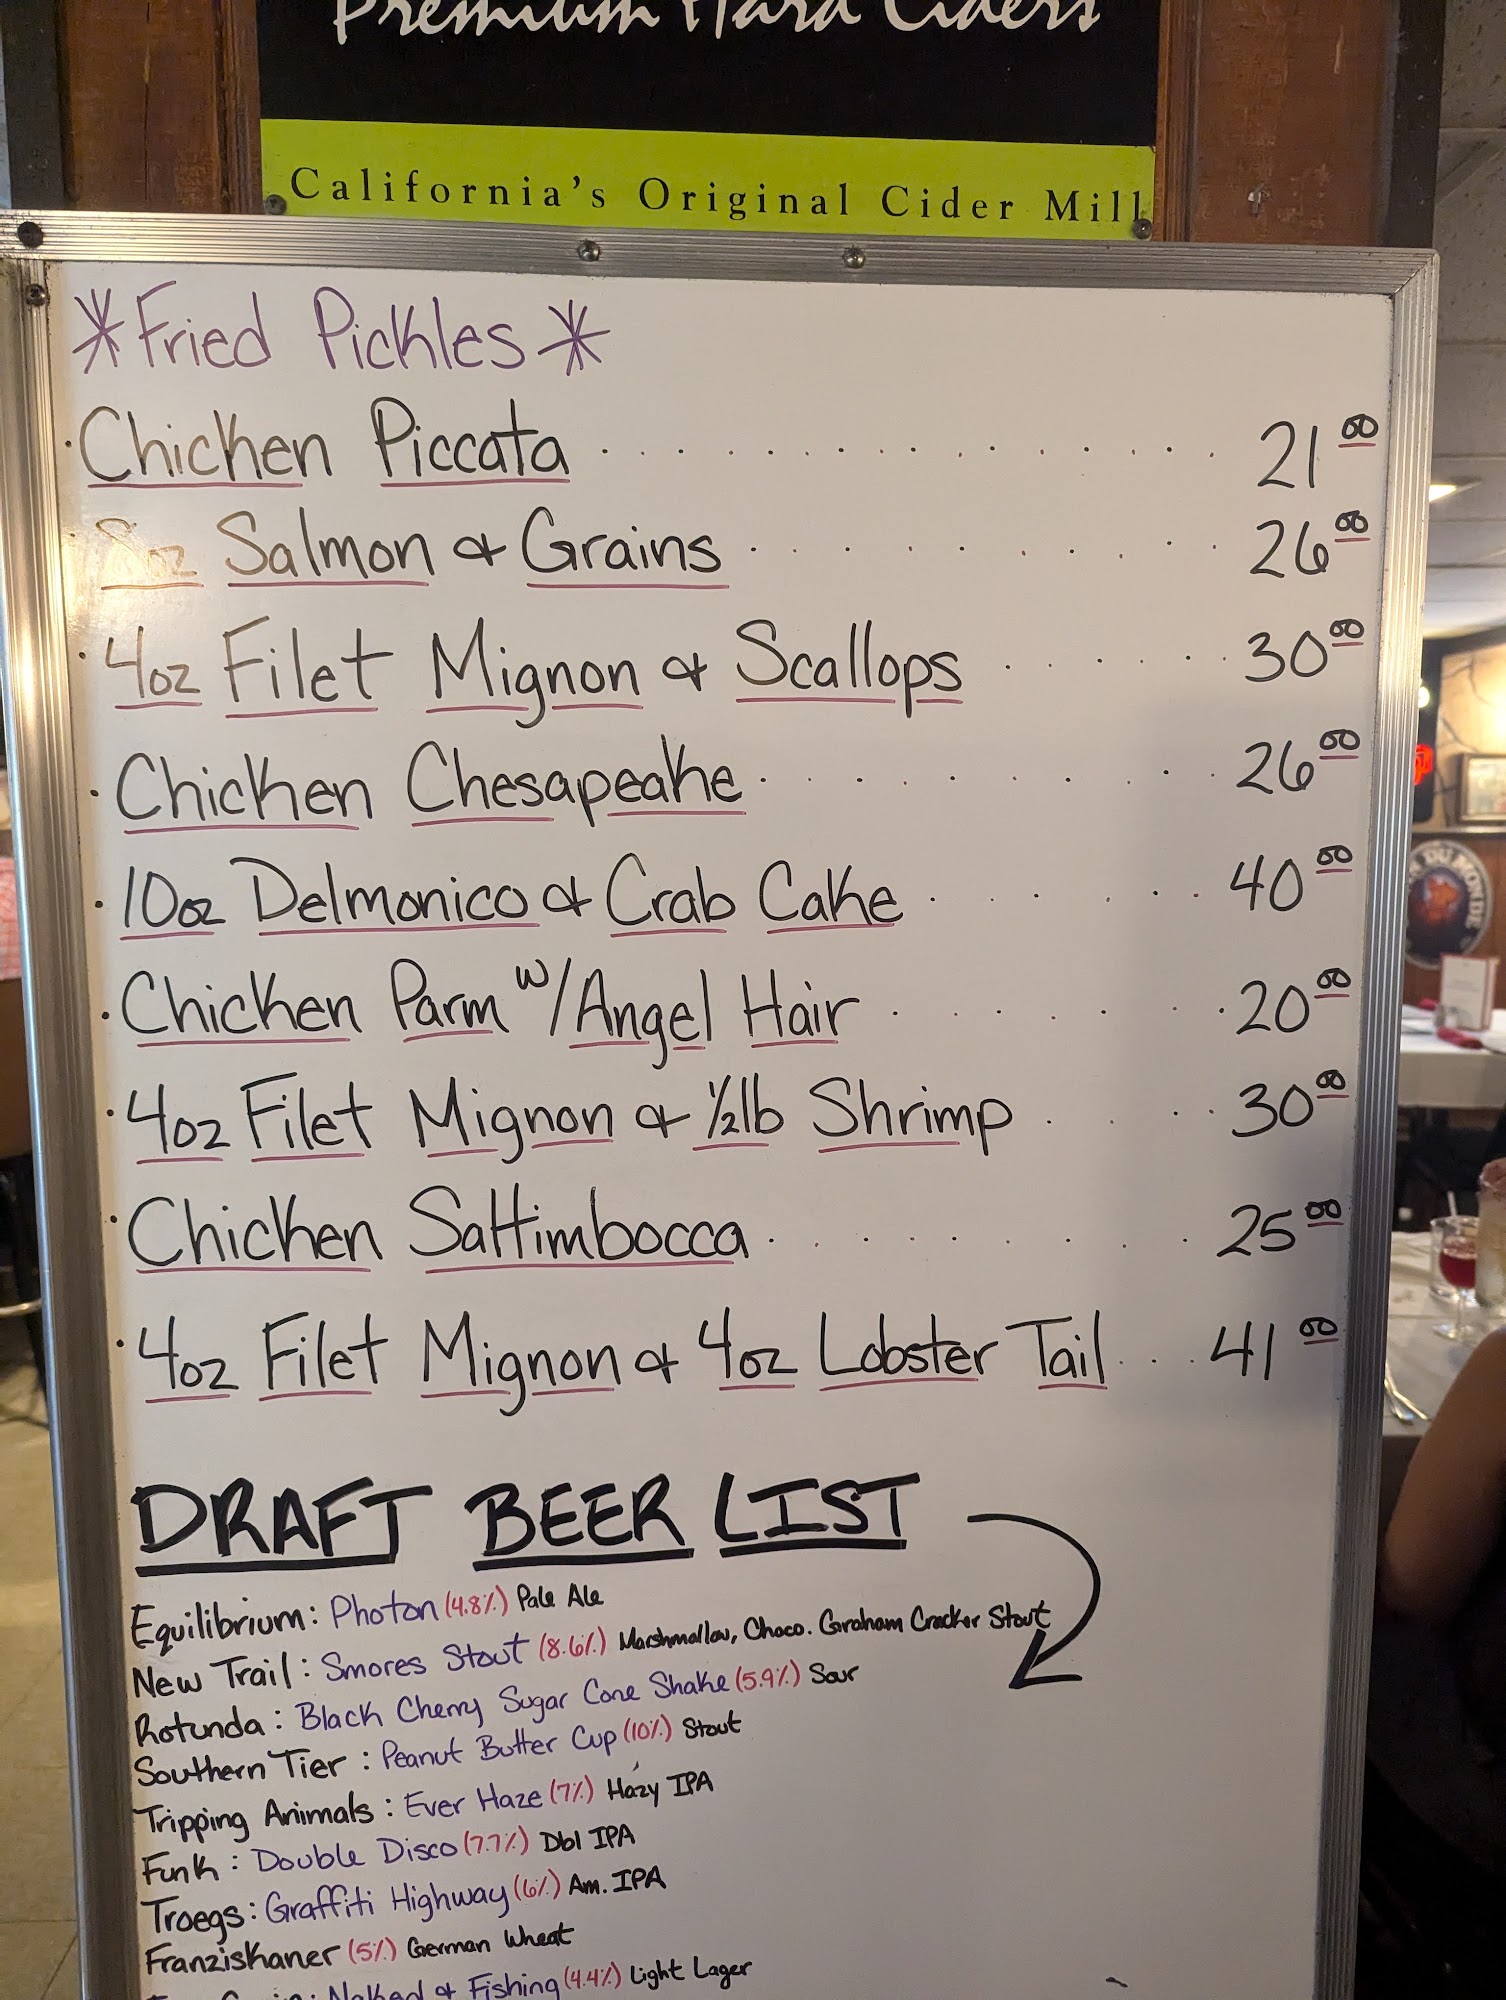 Premium Hard Ciders
California's Original Cider Mill
*Fried Pickles*
· Chicken Piccata . . . . . . . . . . . . . . . 21 00
· 8oz Salmon & Grains . . . . . . . . . . . 26 00
· 4oz Filet Mignon & Scallops . . . . . . . 30 00
· Chicken Chesapeake . . . . . . . . . . 26 00
· 10oz Delmonico & Crab Cake . . . . . . 40 00
· Chicken Parm w/Angel Hair . . . . . . . 20 00
· 4oz Filet Mignon & 1/2lb Shrimp . . . . 30 00
· Chicken Saltimbocca . . . . . . . . . . 25 00
· 4oz Filet Mignon & 4oz Lobster Tail . . . 41 00
DRAFT BEER LIST
Equilibrium: Photon (4.8%) Pale Ale
New Trail: Smores Stout (8.6%) Marshmallow, Choco. Graham Cracker Stout
Rotunda: Black Cherry Sugar Cone Shake (5.9%) Sour
Southern Tier: Peanut Butter Cup (10%) Stout
Tripping Animals: Ever Haze (7%) Hazy IPA
Funk: Double Disco (7.7%) Dbl IPA
Troegs: Graffiti Highway (6%) Am. IPA
Franziskaner (5%) German Wheat
Naked & Fishing (4.4%) Light Lager